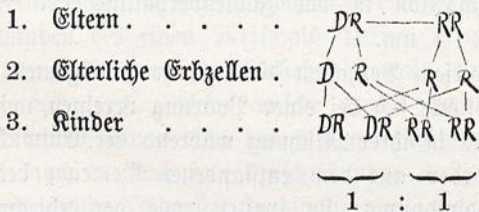 1. Eltern . . . . . DR RR
2. Elterliche Erbzellen . D R R R
3. Kinder . . . . DR DR RR RR
1 : 1